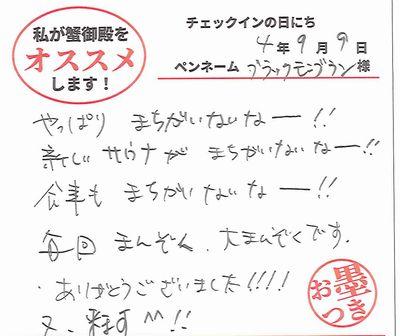 私が蟹御殿を
オススメ
します！
チェックインの日にち
4年9月9日
ペンネーム ブラックモンブラン様
やっぱり まちがいないなー!!
新しいサウナが まちがいないなー!!
食事も まちがいないなー!!
毎回 まんぞく、大まんぞくです。
・ありがとうございました!!!!
又、来ます^^!!
お墨つき